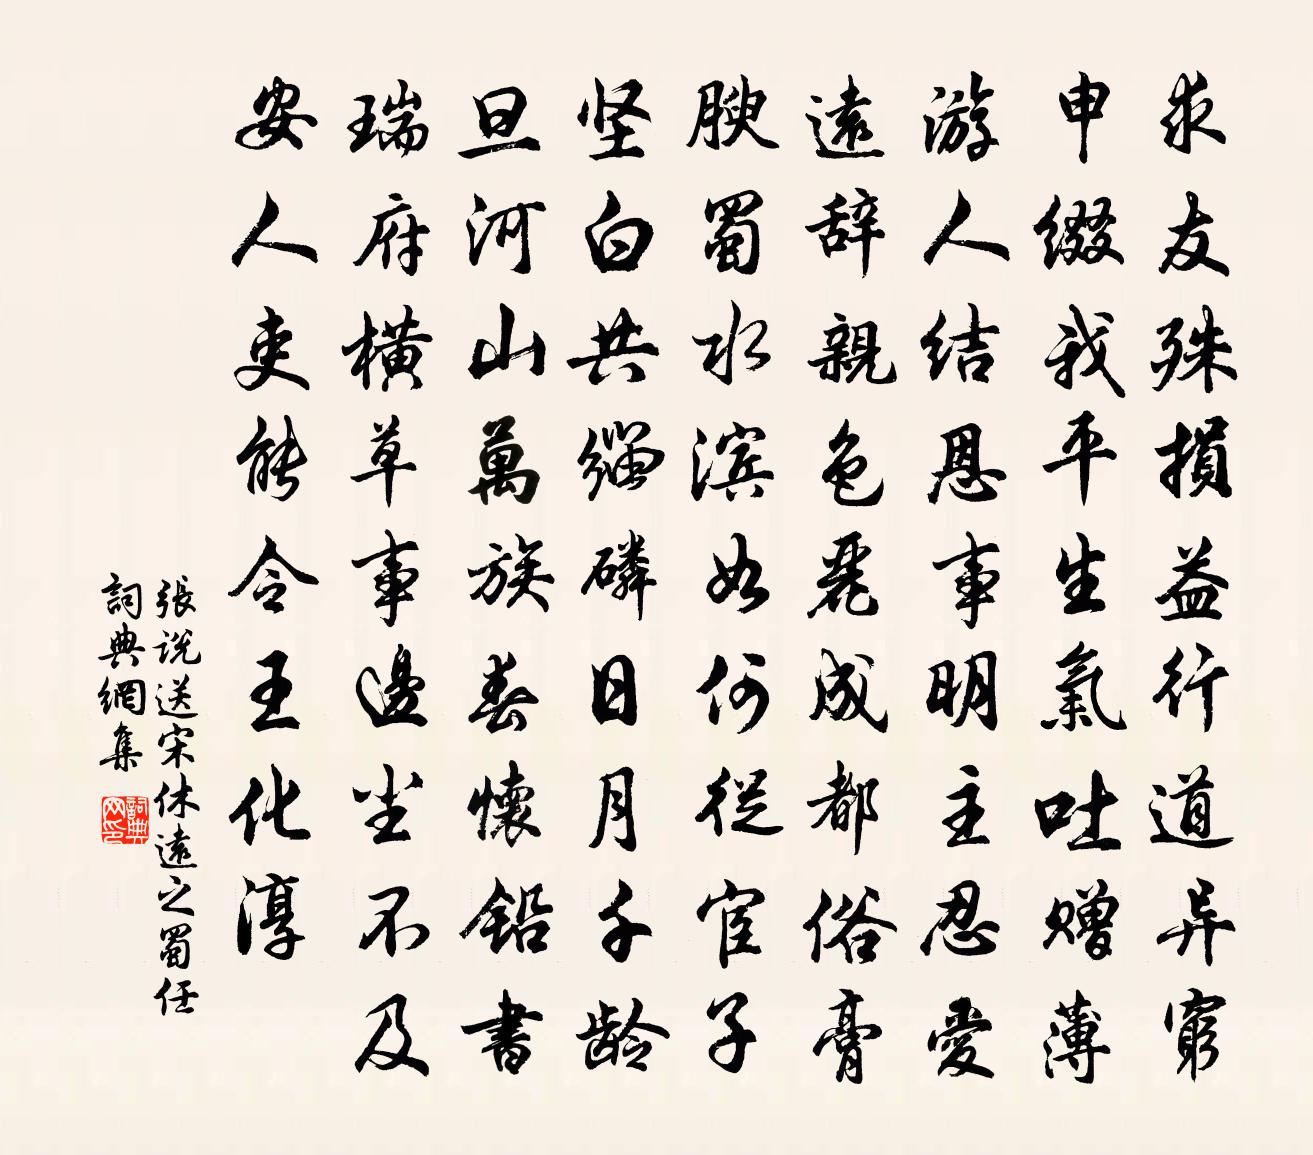 求友殊損益行道异窮
申缀我平生氣吐赠薄
游人结恩事明主忍愛
遠辞親色麗成都俗膏
腴蜀水滨如何從宦子
坚白共缁磷日月千龄
旦河山萬族春懷铅書
瑞府横草事邊尘不及
安人吏能令王化淳
張说送宋休遠之蜀任
詞典網集
詞典网印